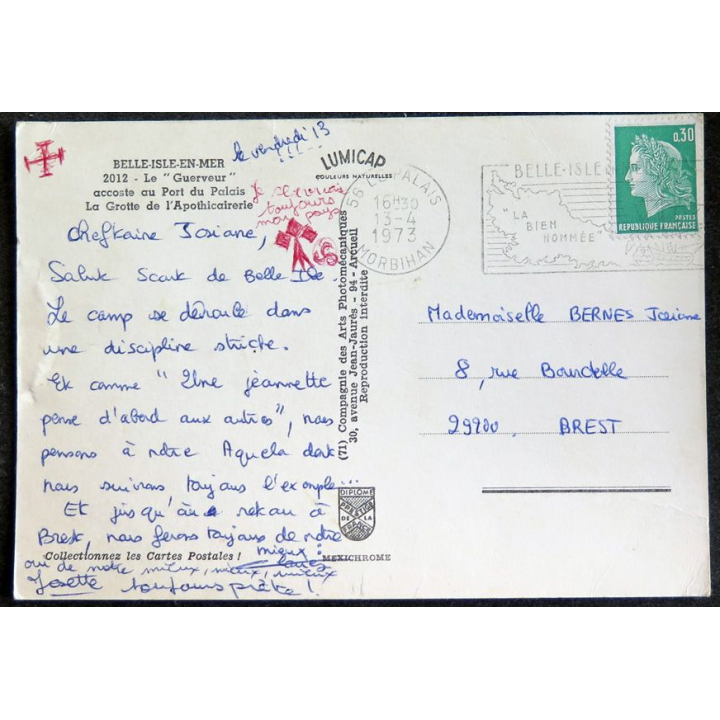 BELLE-ISLE-EN-MER
2012 - Le "Guerveur"
accoste au Port du Palais
La Grotte de l'Apothicairerie
le vendredi 13
LUMICAP
COULEURS NATURELLES
Je
toujours
mon pays
Cheftaine Josiane,
Salut Scout de Belle Ile.
Le camp se déroule dans
une discipline stricte.
Et comme "Une jeannette
pense d'abord aux autres", nous
pensons à notre Aquela dont
nous suivons toujours l'exemple...
Et jusqu'au retour à
Brest, nous ferons toujours de notre
mieux !
oui de notre mieux, mieux, mieux
Josette toujours prête !
Collectionnez les Cartes Postales !
(71) Compagnie des Arts Photomécaniques
30, avenue Jean-Jaurès - 94 - Arcueil
Reproduction interdite
DIPLOME
PRESTIGE
DE LA
FRANCE
MEXICHROME
56 LE PALAIS
16H30
13-4
1973
MORBIHAN
BELLE-ISLE
"LA
BIEN
NOMMÉE"
0,30
POSTES
RÉPUBLIQUE FRANÇAISE
Mademoiselle BERNES Josiane
8, rue Bourdelle
29200, BREST